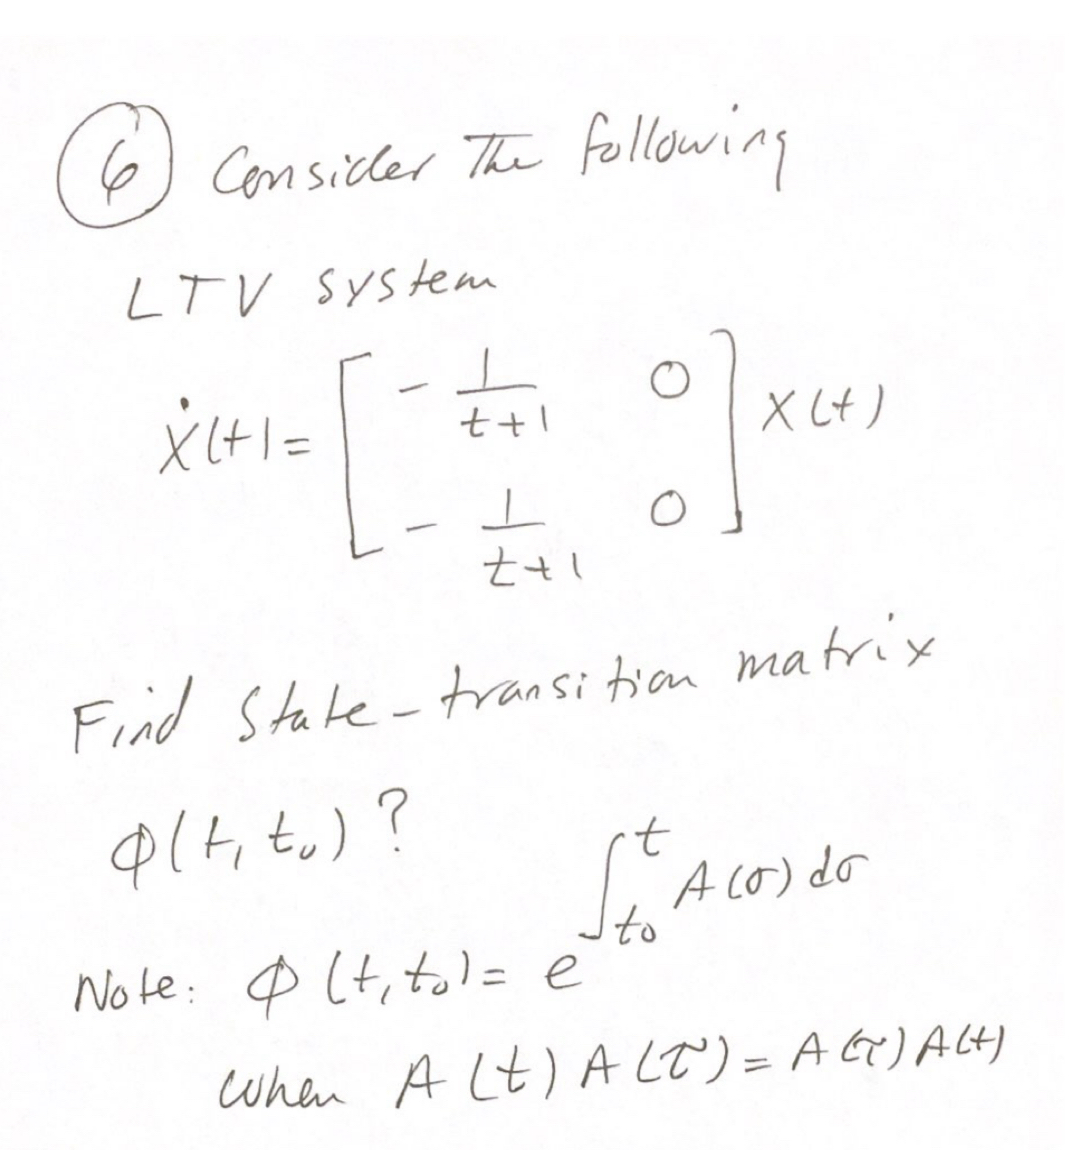 6 Consider The following
LTV system
ẋ(t) = [ - 1/(t+1)  0 ; - 1/(t+1)  0 ] x(t)
Find State-transition matrix
φ(t, t₀) ?
Note: φ(t, t₀) = e^{∫_{t₀}^{t} A(σ) dσ}
when A(t) A(τ) = A(τ) A(t)